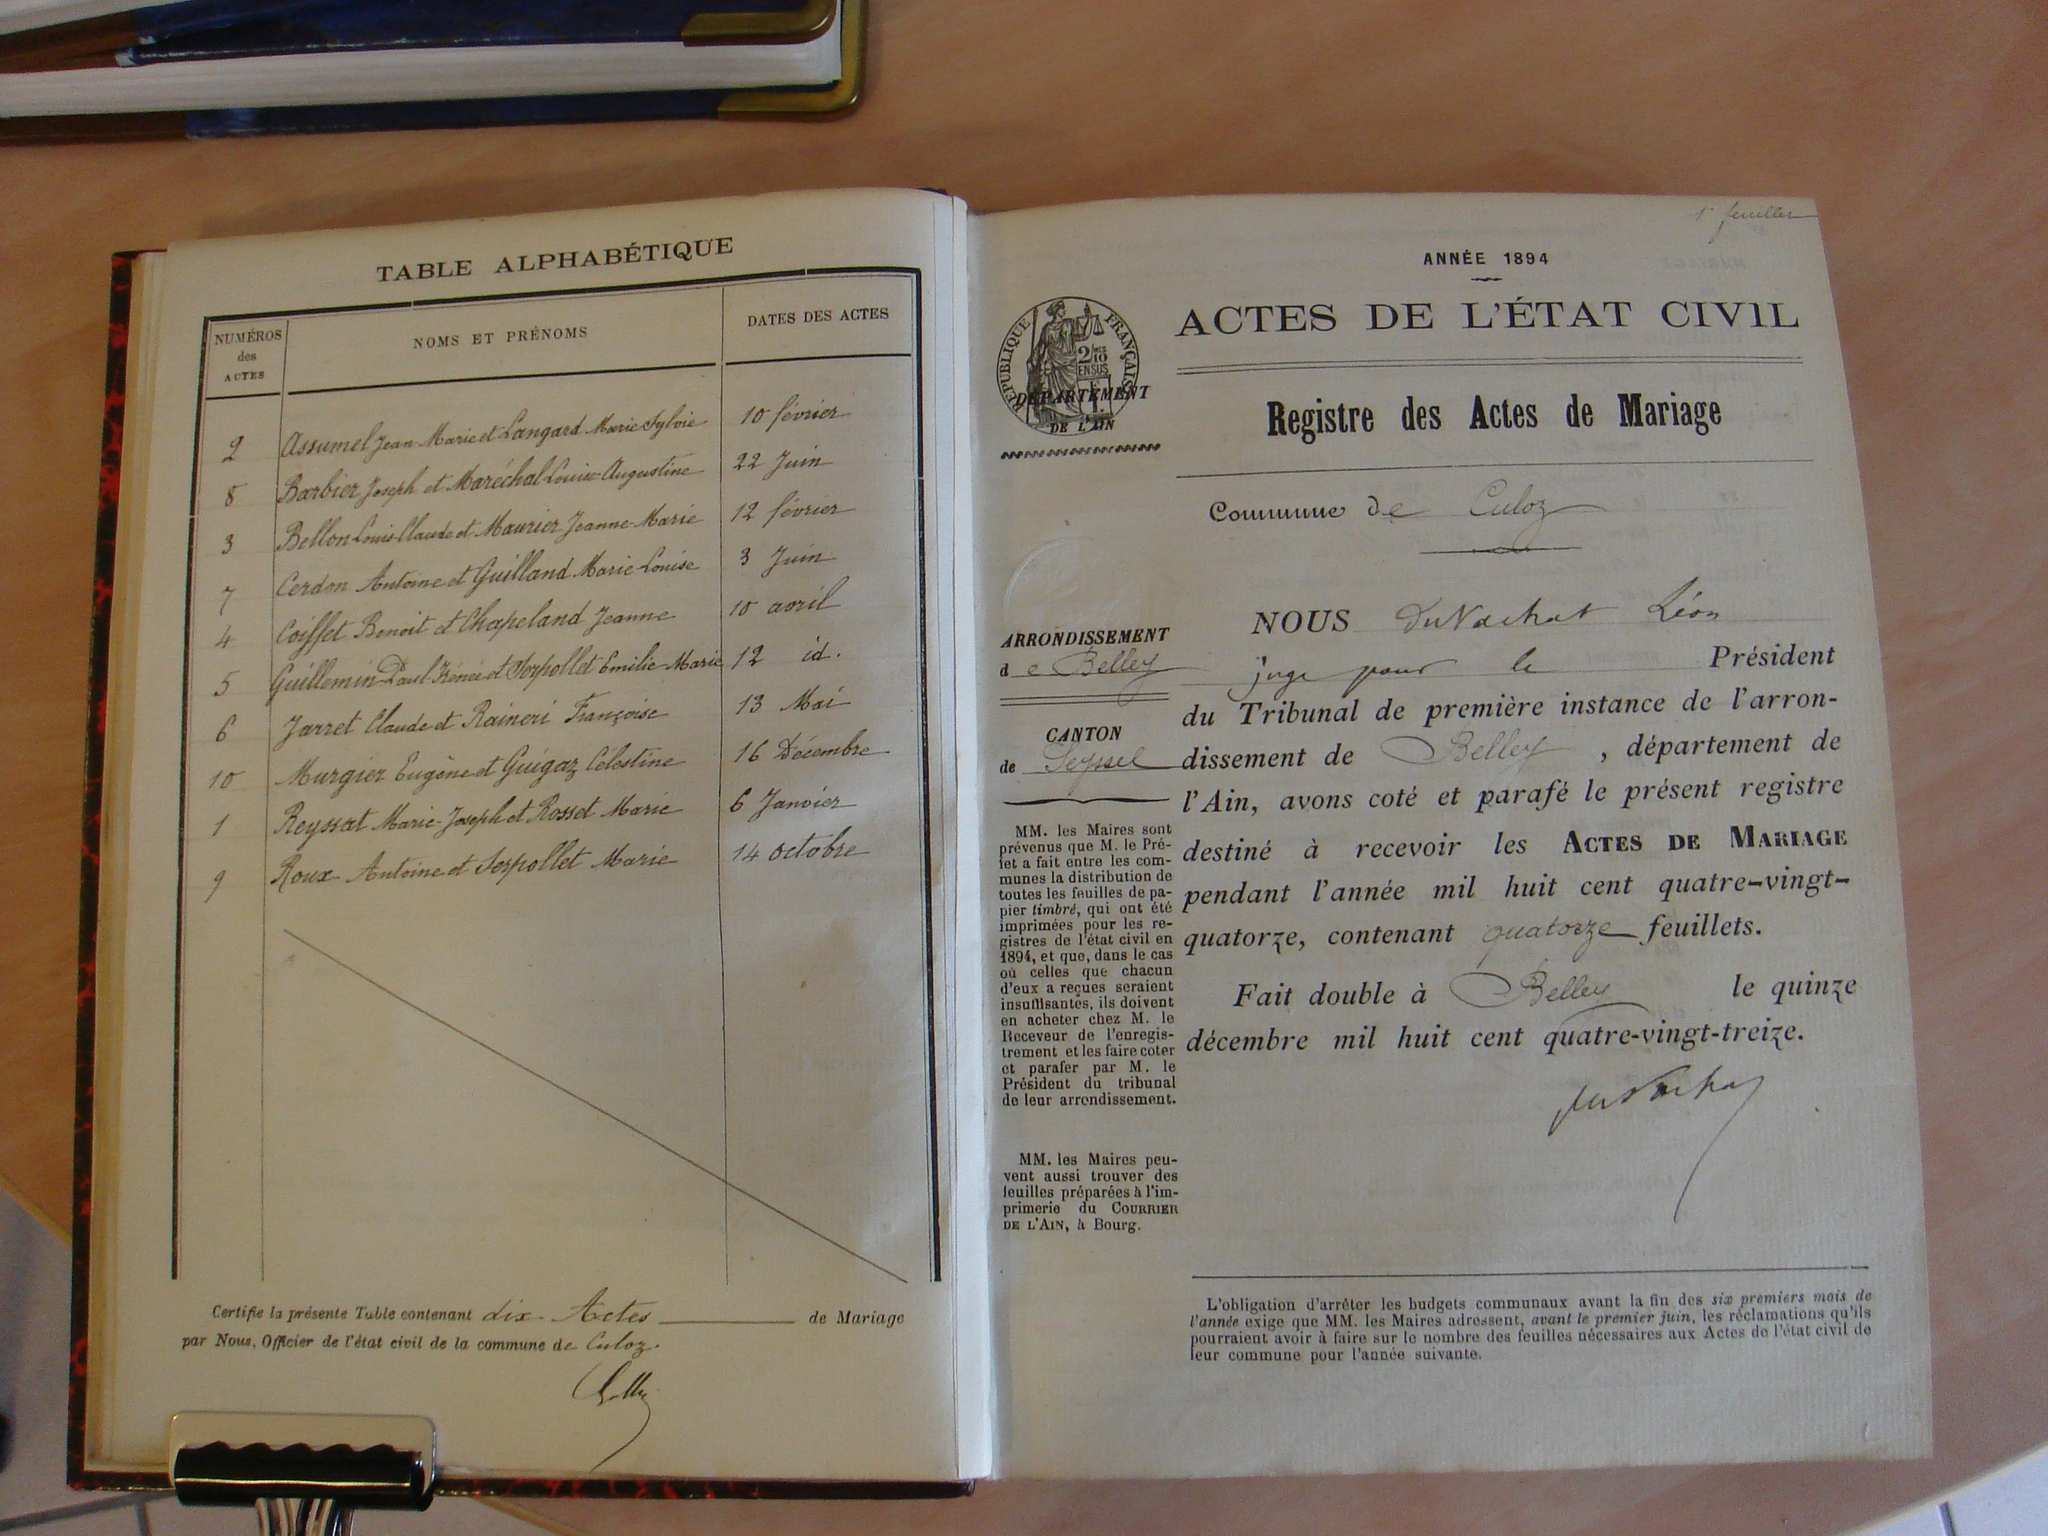 TABLE ALPHABÉTIQUE
NUMÉROS
des
ACTES
NOMS ET PRÉNOMS
DATES DES ACTES
2 Assumel Jean-Marie et Langard Marie Sylvie 10 février
8 Barbier Joseph et Maréchal Louise-Augustine 22 Juin
3 Bellon Louis-Claude et Maurier Jeanne-Marie 12 février
7 Cerdon Antoine et Guilland Marie-Louise 3 Juin
4 Coiffet Benoit et Chapeland Jeanne 10 avril
5 Guillemin Paul Irénée et Serpollet Emilie Marie 12 id.
6 Jarret Claude et Raineri Françoise 13 Mai
10 Murgier Eugène et Guigaz Célestine 16 Décembre
1 Reyssat Marie-Joseph et Rosset Marie 6 Janvier
9 Roux Antoine et Serpollet Marie 14 octobre
Certifie la présente Table contenant dix Actes de Mariage
par Nous, Officier de l'état civil de la commune de Culoz.
1er feuillet
ANNÉE 1894
ACTES DE L'ÉTAT CIVIL
RÉPUBLIQUE FRANÇAISE
2/10
EN SUS
DÉPARTEMENT
DE L'AIN
Registre des Actes de Mariage
Commune de Culoz
ARRONDISSEMENT
de Belley
CANTON
de Seyssel
MM. les Maires sont
prévenus que M. le Pré-
fet a fait entre les com-
munes la distribution de
toutes les feuilles de pa-
pier timbré, qui ont été
imprimées pour les re-
gistres de l'état civil en
1894, et que, dans le cas
où celles que chacun
d'eux a reçues seraient
insuffisantes, ils doivent
en acheter chez M. le
Receveur de l'enregis-
trement et les faire coter
et parafer par M. le
Président du tribunal
de leur arrondissement.
MM. les Maires peu-
vent aussi trouver des
feuilles préparées à l'im-
primerie du COURRIER
DE L'AIN, à Bourg.
NOUS DuVachat Léon
juge pour le Président
du Tribunal de première instance de l'arron-
dissement de Belley, département de
l'Ain, avons coté et parafé le présent registre
destiné à recevoir les ACTES DE MARIAGE
pendant l'année mil huit cent quatre-vingt-
quatorze, contenant quatorze feuillets.
Fait double à Belley le quinze
décembre mil huit cent quatre-vingt-treize.
DuVachat
L'obligation d'arrêter les budgets communaux avant la fin des six premiers mois de
l'année exige que MM. les Maires adressent, avant le premier juin, les réclamations qu'ils
pourraient avoir à faire sur le nombre des feuilles nécessaires aux Actes de l'état civil de
leur commune pour l'année suivante.